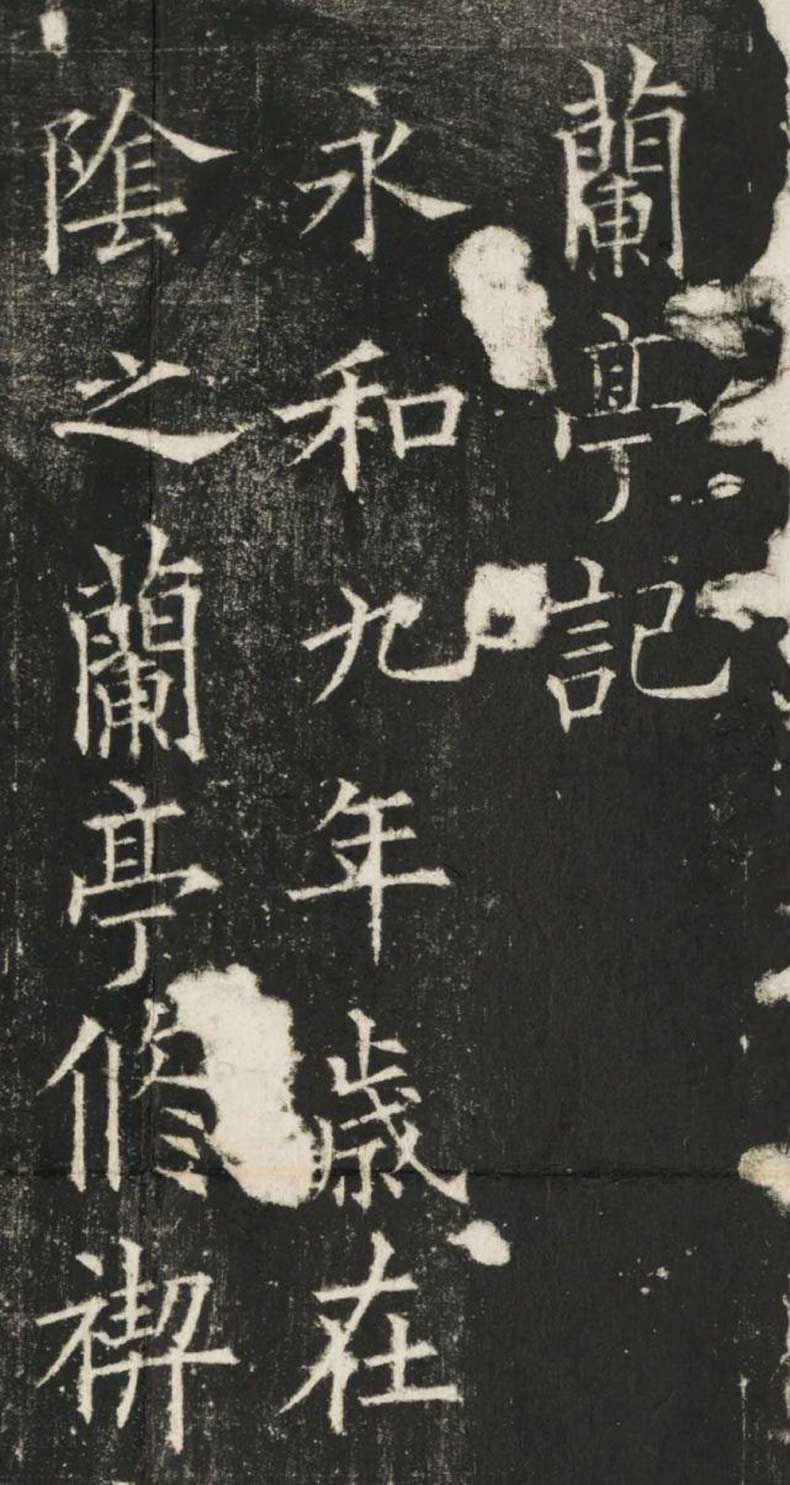 蘭亭記
永和九年歲在
陰之蘭亭脩禊